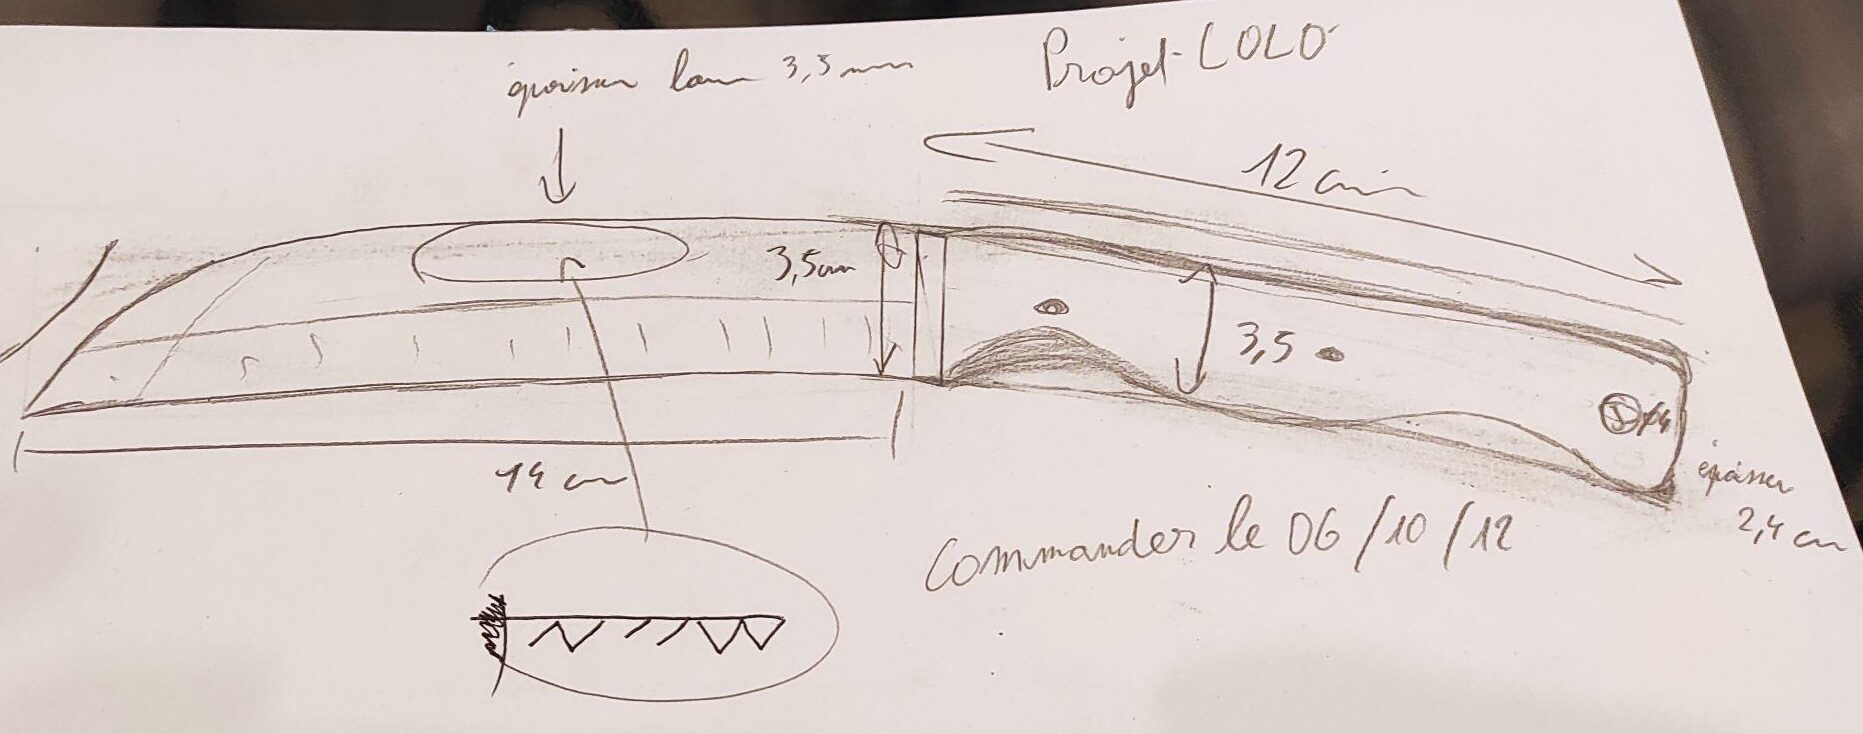 Projet LOLO
épaisseur lame 3,5 mm
12 cm
3,5 cm
3,5
14 cm
épaisseur
2,4 cm
Commander le 06/10/12